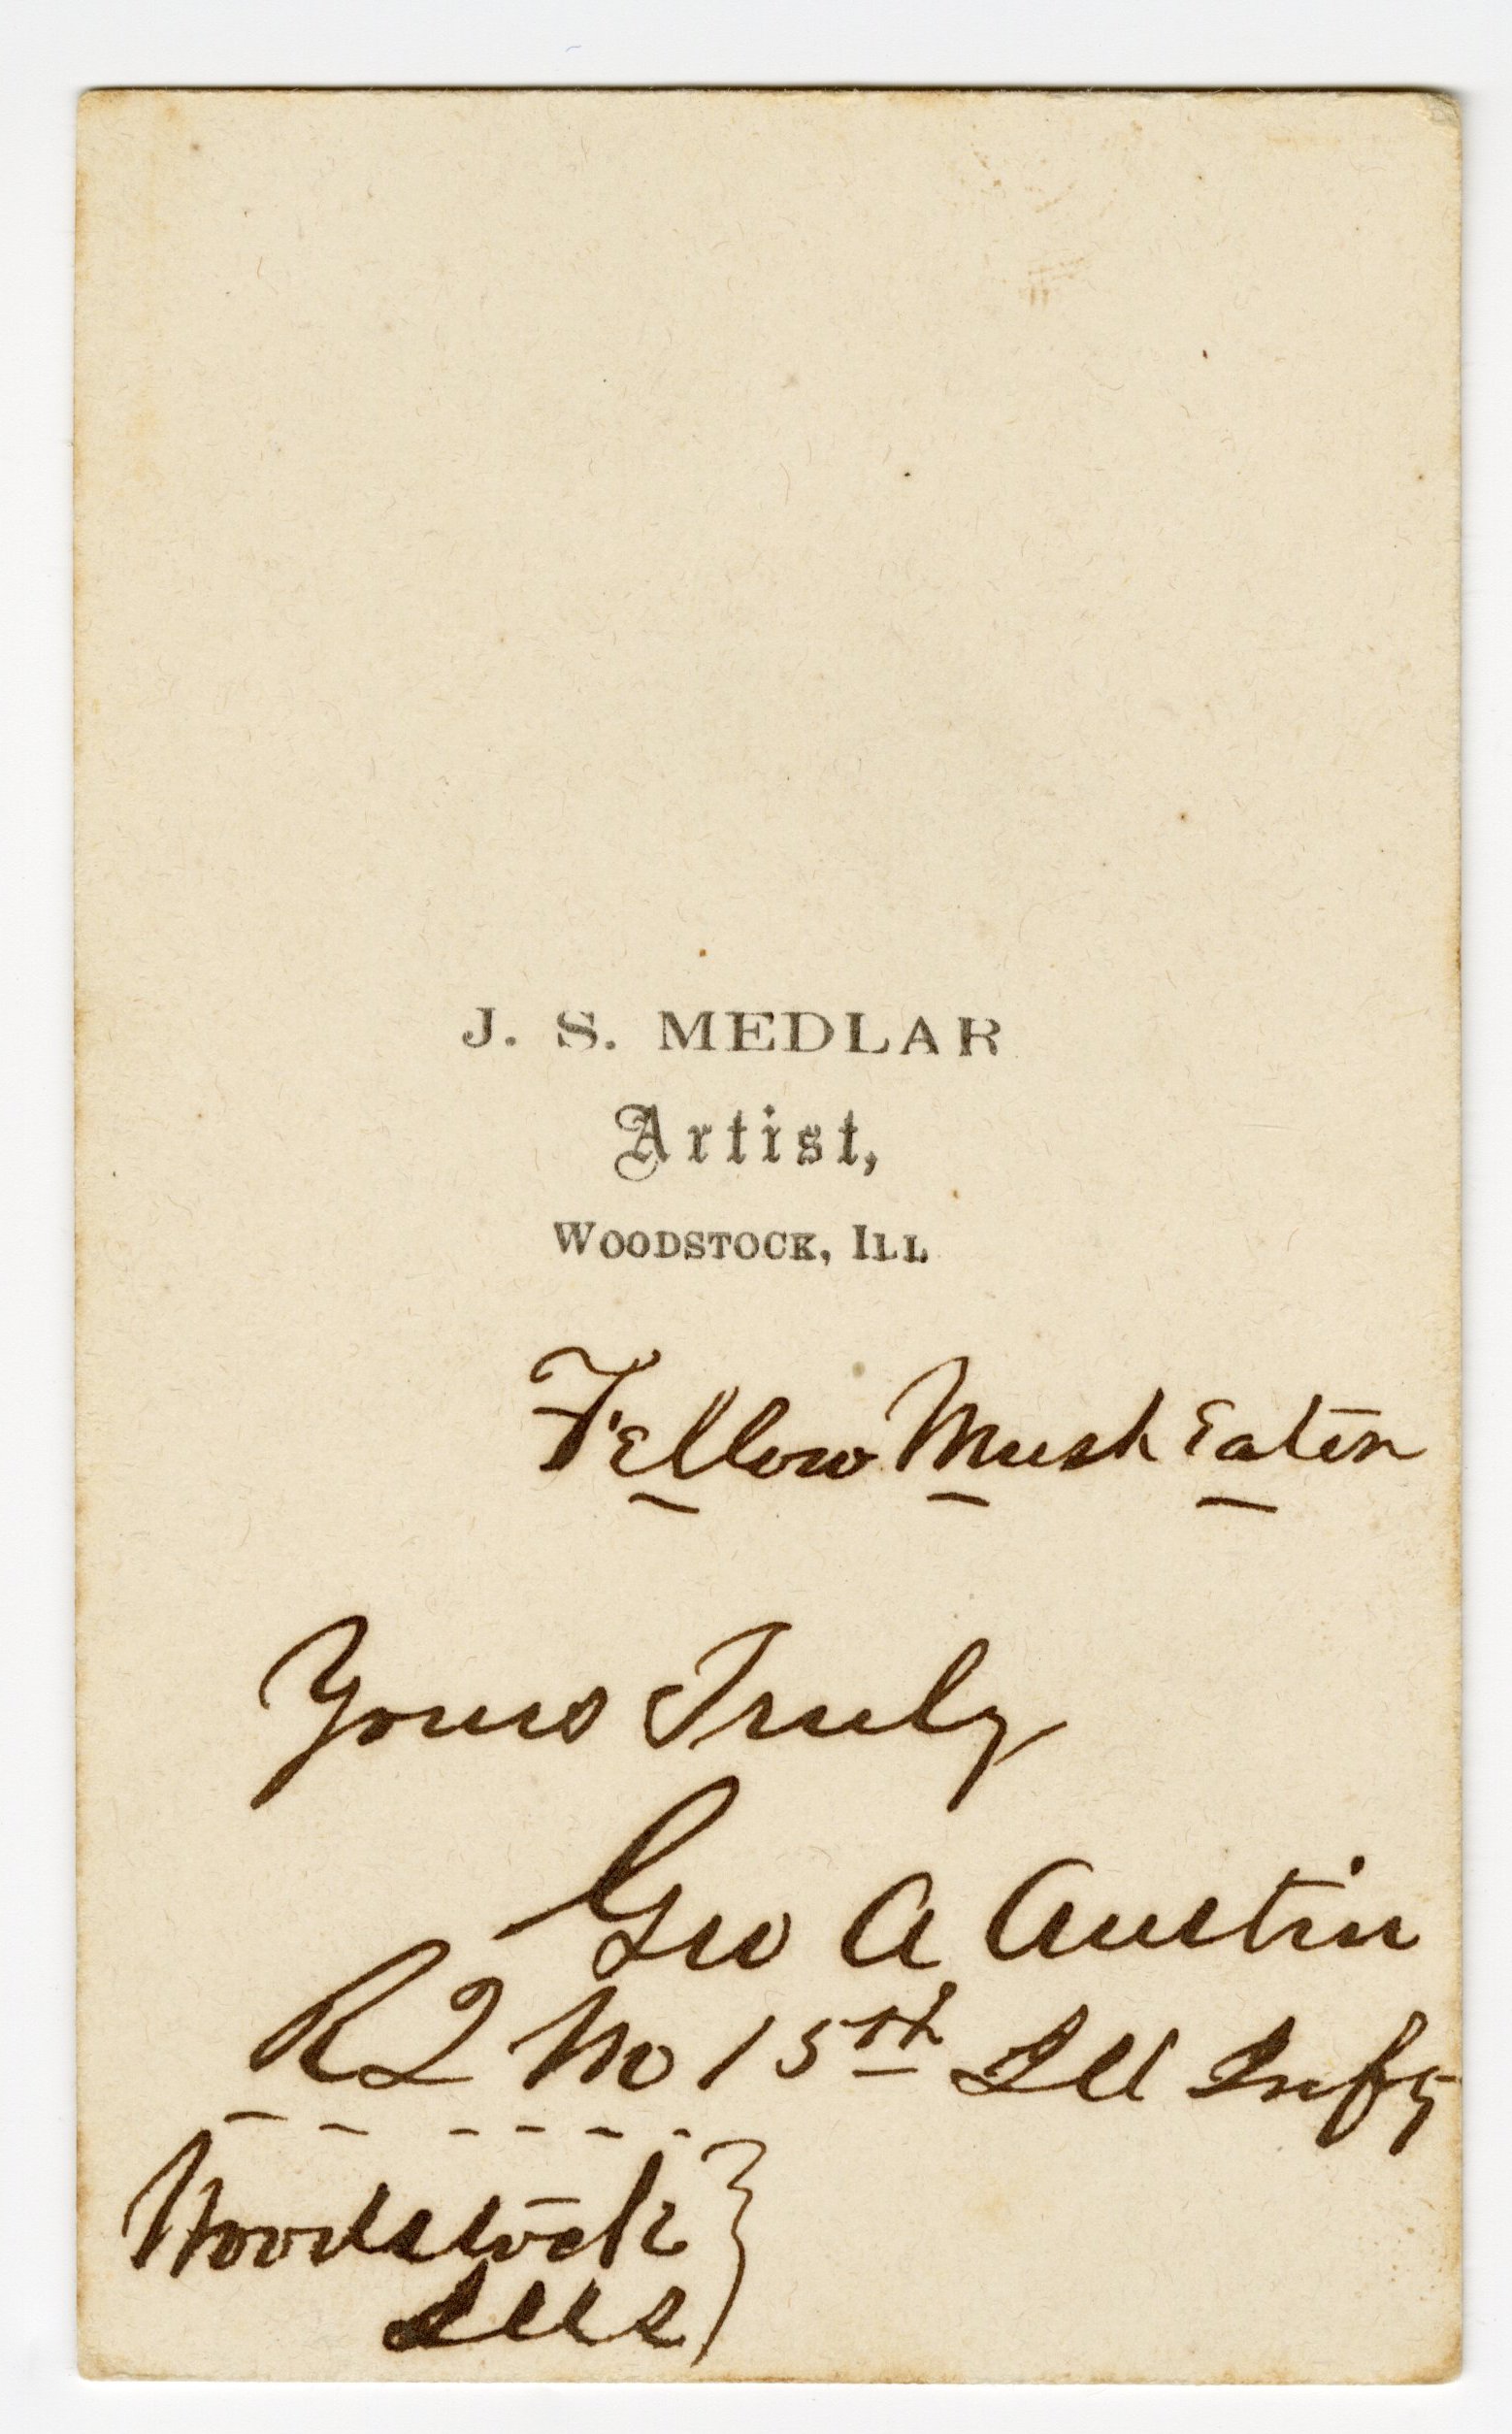 J. S. MEDLAR
Artist,
WOODSTOCK, ILL
Fellow Mush Eater
Yours Truly
Geo A Austin
R Q M 15th Ill Infy
Woodstock
Ills